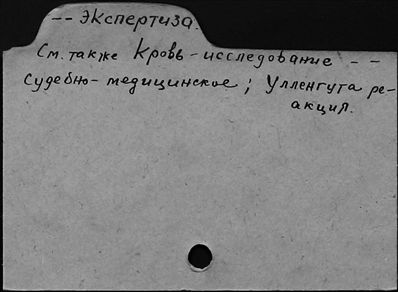 -- Экспертиза.
См. также Кровь - исследование - -
судебно-медицинское; Улленгута ре-
акция.